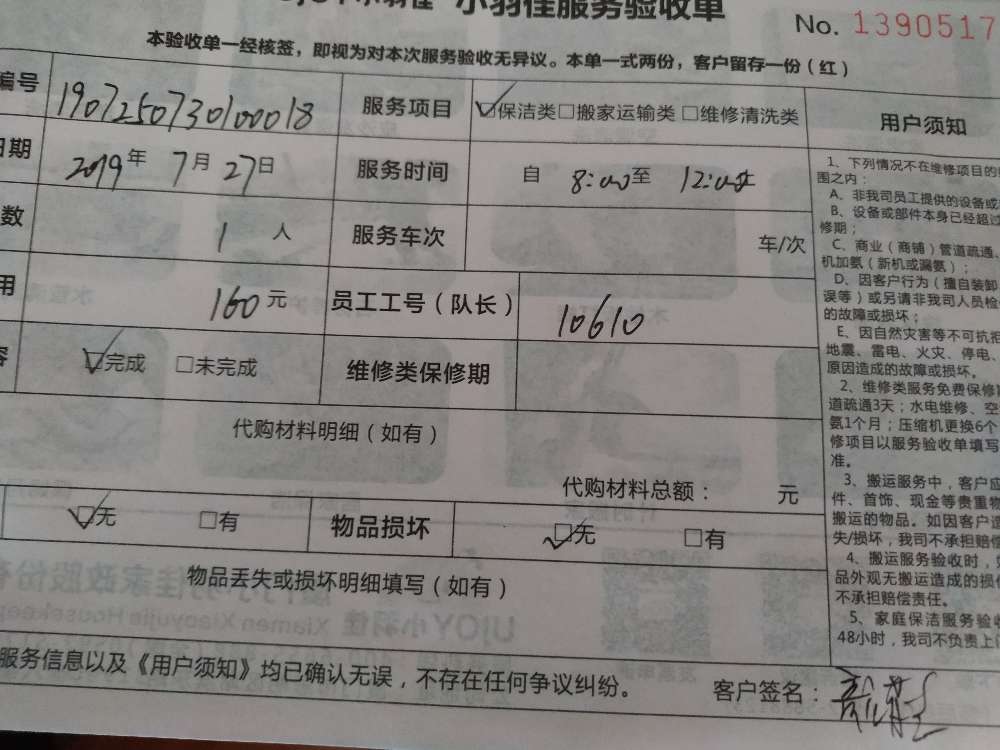 小羽佳服务验收单
No. 1390517
本验收单一经核签，即视为对本次服务验收无异议。本单一式两份，客户留存一份（红）
编号 190725073010018 服务项目 ☑保洁类□搬家运输类□维修清洗类 用户须知
日期 2019年7月27日 服务时间 自 8:00至 12:00
数 1 人 服务车次 车/次
用 160元 员工工号（队长） 10610
容 ☑完成 □未完成 维修类保修期
代购材料明细（如有）
代购材料总额： 元
☑无 □有 物品损坏 ☑无 □有
物品丢失或损坏明细填写（如有）
服务信息以及《用户须知》均已确认无误，不存在任何争议纠纷。 客户签名：
1、下列情况不在维修项目的
围之内：
A、非我司员工提供的设备或
B、设备或部件本身已经超过
修期；
C、商业（商铺）管道疏通、
机加氨（新机或漏氨）；
D、因客户行为（擅自装卸
误等）或另请非我司人员检
的故障或损坏；
E、因自然灾害等不可抗拒
地震、雷电、火灾、停电、
原因造成的故障或损坏。
2、维修类服务免费保修
道疏通3天；水电维修、空
氨1个月；压缩机更换6个
修项目以服务验收单填写
准。
3、搬运服务中，客户应
件、首饰、现金等贵重物
搬运的物品。如因客户
失/损坏，我司不承担赔偿
4、搬运服务验收时，
品外观无搬运造成的损
不承担赔偿责任。
5、家庭保洁服务验收
48小时，我司不负责上